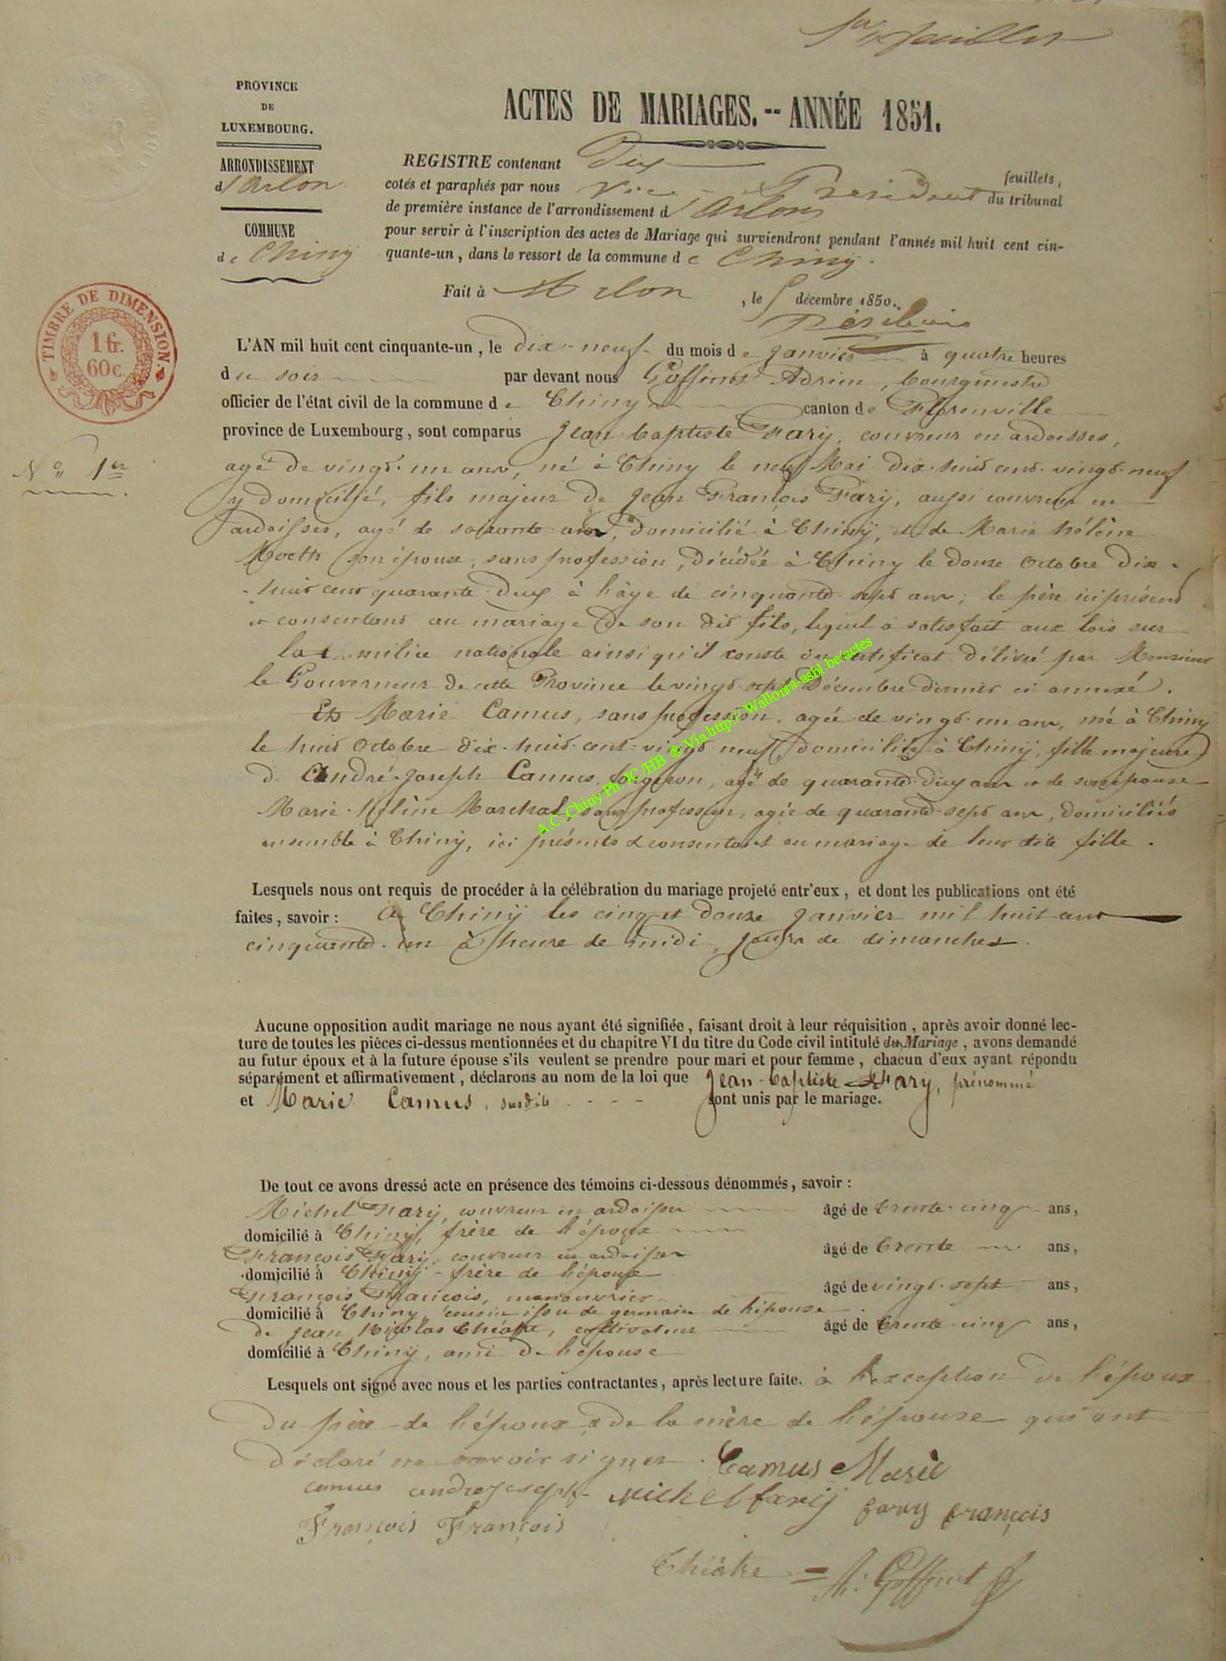 1er feuillet
PROVINCE
DE
LUXEMBOURG.
ARRONDISSEMENT
d'Arlon
COMMUNE
de Chiny
ACTES DE MARIAGES. -- ANNÉE 1851.
REGISTRE contenant Dix feuillets,
cotés et paraphés par nous Vice-Président du tribunal
de première instance de l'arrondissement d'Arlon
pour servir à l'inscription des actes de Mariage qui surviendront pendant l'année mil huit cent cin-
quante-un, dans le ressort de la commune de Chiny.
Fait à Arlon, le décembre 1850.
TIMBRE DE DIMENSION.
1 fr.
60 c.
N° 1er
L'AN mil huit cent cinquante-un, le dix-neuf du mois de Janvier à quatre heures
du soir par devant nous Goffinet Adrien, bourgmestre
officier de l'état civil de la commune de Chiny canton de Florenville
province de Luxembourg, sont comparus Jean baptiste Fary, couvreur en ardoises,
agé de vingt-un ans, né à Chiny le neuf Mai dix-huit cent-vingt-neuf
y domicilié, fils majeur de Jean François Fary, aussi couvreur en
ardoises, agé de soixante ans, domicilié à Chiny, et de Marie hélène
son épouse, sans profession, décédée à Chiny le douze Octobre dix-
-huit cent quarante-deux à l'âge de cinquante-sept ans; le père ici présent
et consentant au mariage de son dit fils, lequel a satisfait aux lois sur
la milice nationale ainsi qu'il conste du certificat délivré par Monsieur
le Gouverneur de cette Province le vingt-sept Décembre dernier ci annexé.
Et Marie Camus, sans profession, agée de vingt-un ans, née à Chiny
le huit Octobre dix-huit-cent-vingt-neuf, domiciliée à Chiny, fille majeure
d'André-Joseph Camus, forgeron, agé de quarante-deux ans et de son épouse
Marie-hélène Marchal, sans profession, agée de quarante-sept ans, domiciliés
ensemble à Chiny, ici présents & consentant au mariage de leur dite fille.
A.C. Chiny Ph JC/HB @ Via http:// Wallonia-asbl.be/actes
Lesquels nous ont requis de procéder à la célébration du mariage projeté entr'eux, et dont les publications ont été
faites, savoir : à Chiny les cinq et douze Janvier mil huit cent
cinquante-un à l'heure de midi, jours de dimanches.
Aucune opposition audit mariage ne nous ayant été signifiée, faisant droit à leur réquisition, après avoir donné lec-
ture de toutes les pièces ci-dessus mentionnées et du chapitre VI du titre du Code civil intitulé du Mariage, avons demandé
au futur époux et à la future épouse s'ils veulent se prendre pour mari et pour femme, chacun d'eux ayant répondu
séparément et affirmativement, déclarons au nom de la loi que Jean-baptiste Fary, prénommé
et Marie Camus, susdite - - - sont unis par le mariage.
De tout ce avons dressé acte en présence des témoins ci-dessous dénommés, savoir :
Michel Fary, couvreur en ardoises âgé de trente-cinq ans,
domicilié à Chiny, frère de l'époux
François Fary, couvreur en ardoises âgé de trente ans,
domicilié à Chiny - frère de l'époux
François François, manouvrier âgé de vingt-sept ans,
domicilié à Chiny, cousin issu de germain de l'épouse
& Jean Nicolas Thiake, cultivateur âgé de trente-cinq ans,
domicilié à Chiny, ami de l'épouse
Lesquels ont signé avec nous et les parties contractantes, après lecture faite. à l'exception de l'époux
du père de l'époux & de la mère de l'épouse qui ont
déclaré ne savoir signer.
Camus Marie
camus andré joseph michel fary fary françois
François François
Thiake = A. Goffinet